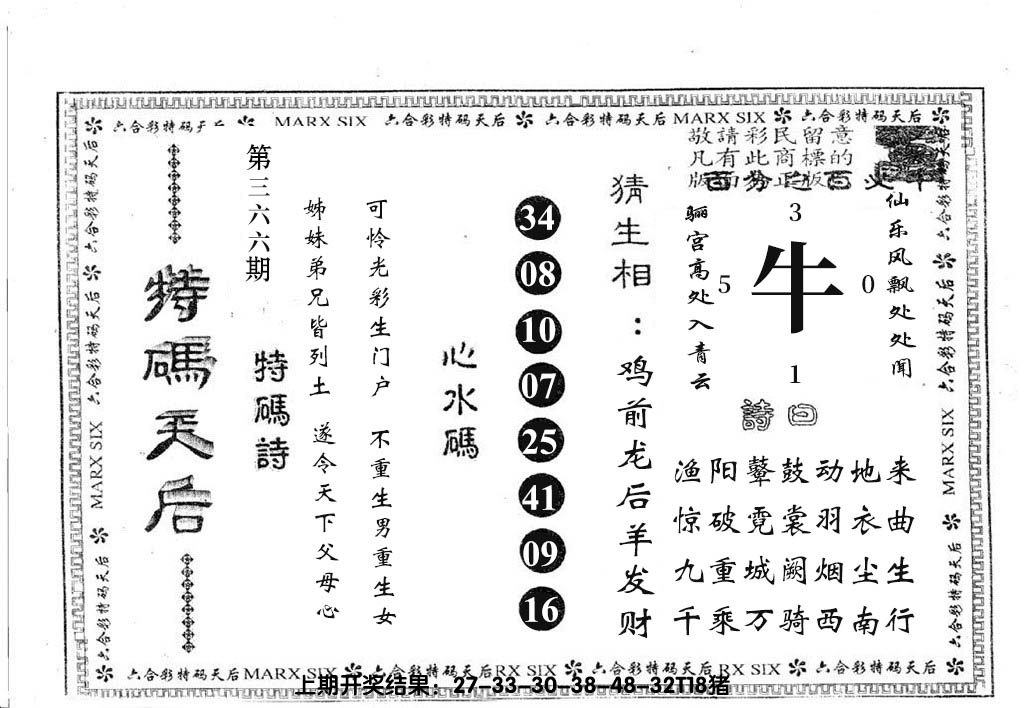 六合彩特码 MARX SIX 六合彩特码天后 六合彩特码天后 MARX SIX 六合彩特码天后
敬請彩民留意
凡有此商標的
版面正版
六合彩特码天后 MARX SIX 六合彩特码天后
特碼天后
第三六六期
特碼詩
姊妹弟兄皆列土 遂令天下父母心
可怜光彩生门户 不重生男重生女
心水碼
34
08
10
07
25
41
09
16
猜生相：鸡前龙后羊发财
骊宫高处入青云
3
5 牛 0
1
仙乐风飘处处闻
詩曰
渔阳鼙鼓动地来
惊破霓裳羽衣曲
九重城阙烟尘生
千乘万骑西南行
六合彩特码天后 六合彩特码天后 MARX SIX 六合彩特码天后
六合彩特码天后 MARX SIX 六合彩特码天后 RX SIX 六合彩特码天后 RX SIX 六合彩特码天后
上期开奖结果：27-33-30-38-48-32T18猪